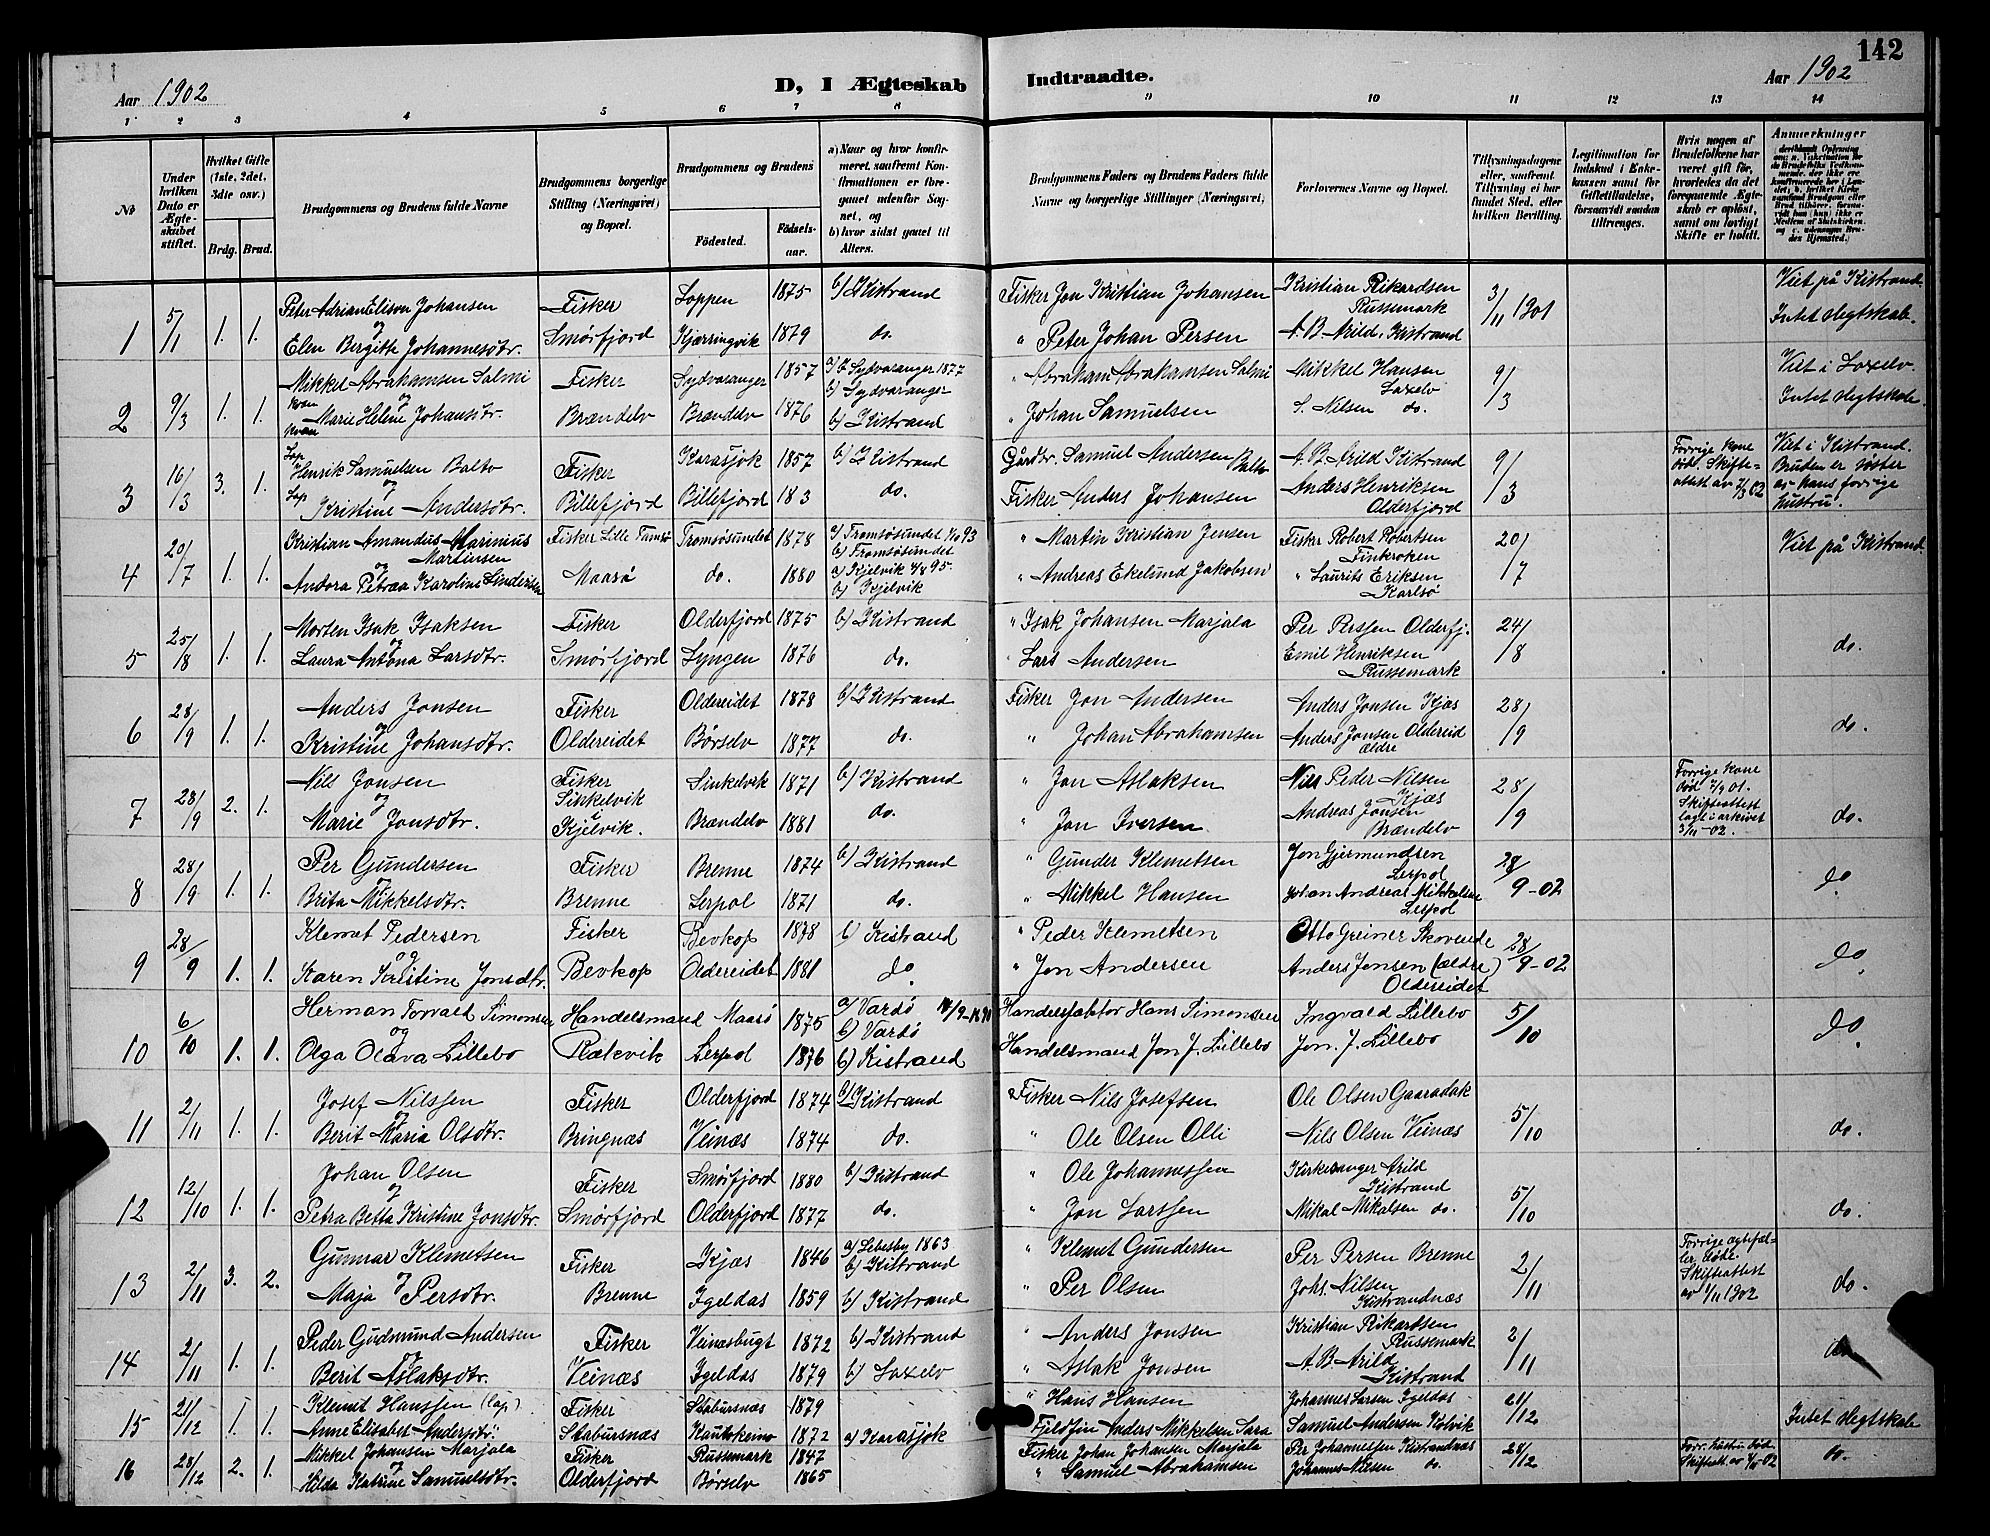 142
Aar 1902
D, I Ægteskab Indtraadte.
Aar 1902
1 2 3 4 5 6 7 8 9 10 11 12 13 14
No
Under hvilken Dato er Ægteskabet stiftet.
Hvilket Gifte (1ste, 2det, 3die osv.)
Brdg. Brud.
Brudgommens og Brudens fulde Navne
Brudgommens borgerlige Stilling (Næringsvei) og Bopæl.
Brudgommens og Brudens
Födested. Födselsaar.
a) Naar og hvor konfirmeret, saafremt Konfirmationen er foregaaet udenfor Sognet, og
b) hvor sidst gaaet til Alters.
Brudgommens Faders og Brudens Faders fulde Navne og borgerlige Stillinger (Næringsvei)
Forlovernes Navne og Bopæl.
Tillysningsdagene eller, saafremt Tillysning ei har fundet Sted, efter hvilken Bevilling.
Legitimation for Indskud i Enkekassen samt for Giftetilladelse, forsaavidt saadan tiltrænges.
Hvis nogen af Brudefolkene har været gift för, hvorledes da det foregaaende Ægteskab er oplöst, samt om lovligt Skifte er holdt.
Anmerkninger
1 5/1 1. 1. Peter Adrian Elison Johansen Fisker Loppen 1875 b) Kistrand Fisker Jon Kristian Johansen Kristian Rikardsen Russemark 3/11 1901 Viet på Kistrand.
og Elen Bergitte Johannesdtr. Smørfjord Kjærringvik 1879 do. " Peter Johan Persen A. B. Arild, Kistrand Intet slegtskab.
2 9/3 1. 1. Mikkel Abrahamsen Salmi Fisker Sydvaranger 1857 a) Sydvaranger 1877 b) Sydvaranger " Abraham Abrahamsen Salmi Mikkel Hansen Laxelv 9/3 Viet i Laxelv
kvæn og Marie Helene Johansdtr. kvæn Brændelv Brændelv 1876 b) Kistrand " Johan Samuelsen S. Nilsen do. Intet slegtskab
3 16/3 3. 1. Lap Henrik Samuelsen Balto Fisker Karasjok 1857 b) Kistrand Gårdbr. Samuel Andersen Balto A. B. Arild Kistrand 9/3 Forrige kone död. Skifteattest av 7/3 02 Viet i Kistrand.
og Lap Kristine Andersdtr. Billefjord Billefjord 183 do. Fisker Anders Johansen Anders Henriksen Olderfjord Bruden er søster av hans forrige hustru.
4 20/7 1. 1. Kristian Amandus Marinius Martinsen Fisker Lille Tamsø Tromsøsundet 1878 a) Tromsøsundet 93 b) Tromsøsundet " Martin Kristian Jensen Fisker Robert Robertsen Finkroken 20/7 Viet på Kistrand
og Andora Petræa Karoline Lindersen Maasø do. 1880 a) Kjelvik 4/8 95. b) Kjelvik " Andreas Ekelund Jakobsen " Laurits Eriksen Karlsö
5 25/8 1. 1. Morten Isak Isaksen Fisker Olderfjord 1875 b) Kistrand " Isak Johansen Marjala Per Perssen Olderfj. 24/8 do.
og Laura Antona Larsdtr. Smørfjord Lyngen 1876 do. " Lars Andersen Emil Henriksen Russemark
6 28/9 1. 1. Anders Jonsen Fisker Oldereidet 1878 b) Kistrand Fisker Jon Andersen Anders Jonsen Kjæs 28/9 do.
og Kristine Johansdtr. Oldereidet Børselv 1877 do. " Johan Abrahamsen Anders Jonsen Oldereid ældre
7 28/9 2. 1. Nils Jonsen Fisker Sinkelvik 1871 b) Kistrand " Jon Aslaksen Nils Peder Nilsen Kjæs 28/9 Forrige kone död 7/9 01. Skifteattest lagt i arkivet 3/11-02. do.
og Marie Jonsdtr. Sinkelvik i Kjelvik. Brændelv 1881 do. " Jon Iversen Andreas Jonsen Brændelv
8 28/9 1. 1. Per Gundersen Fisker Brenne 1874 b) Kistrand " Gunder Klemetsen Jon Gjermundsen Lerpol 28/9-02 do
og Brita Mikkelsdtr. Brenne Lerpol 1871 do. " Mikkel Hansen Johan Andreas Mikkelsen Lerpol
9 28/9 1. 1. Klemet Pedersen Fisker Bevkop 1878 b) Kistrand " Peder Klemetsen Otto Greiner Skovende 28/9-02 do
og Karen Kristine Jonsdtr. Bevkop Oldereidet 1881 do " Jon Andersen Anders Jonsen (ældre) Oldereidet
10 6/10 1. 1. Herman Torvald Simonsen Handelsmand Maasö 1875 a) Vardö b) Vardö Handelsfaktor Hans Simonsen Ingvald Lillebo 5/10 do
og Olga Olava Lillebo Rækvik Lerpol 1876 b) Kistrand Handelsmand Jon J. Lillebo Jon. J. Lillebo
11 2/11 1. 1. Josef Nilssen Fisker Olderfjord 1874 b) Kistrand Fisker Nils Josefsen Ole Olsen Gaaradak 5/10 do.
og Berit Maria Olsdtr. Bringnæs Veinæs 1874 do. " Ole Olsen Olli Nils Olsen Veinæs
12 12/10 1. 1. Johan Olsen Fisker Smørfjord 1880 b) Kistrand " Ole Johannessen Kirkesanger Arild Kistrand 5/10 do.
og Petra Betta Kristine Jonsdtr. Smørfjord Olderfjord 1877 do. " Jon Larssen Mikal Mikalsen do.
13 2/11 3. 2. Gunnar Klemetsen Fisker Kjæs 1846 a) Lebesby 1863 b) Kistrand " Klemet Gundersen Per Persen Brenne 2/11 Forrige ægtefæller döde. Skifteattest av 1/11 1902 do.
og Maja Persdtr. Brenne Igeldas 1859 b) Kistrand " Per Olsen Johs. Nilsen Kistrandnæs
14 2/11 1. 1. Peder Gudmund Andersen Fisker Veinesbugt 1872 b) Kistrand " Anders Jonsen Kristian Rikardsen Russemark 2/11 do
og Berit Aslaksdtr. Veinæs Igeldas 1879 b) Laxelv " Aslak Jonsen A. B. Arild Kistrand
15 21/12 1. 1. Klemit Hanssen (Lap) Fisker Stabursnæs 1879 " Hans Hansen Johannes Larsen Igeldas 21/12
Anne Elisabet Andersdtr. Stabursnæs Kautokeino 1872 a) Karasjok Fjeldfin Anders Mikkelsen Sara Samuel Andersen Kolvik Intet slegtskab
16 28/12 2. 1. Mikkel Johansen Marjala Fisker Russemark 1847 Fisker Johan Johansen Marjala Per Johannessen Kistrandnæs 28/12 Forr. hustru död Skifteatt. av 02 do.
og Hilda Katrine Samuelsdtr. Olderfjord Børselv 1865 " Samuel Abrahamsen Johannes Nilsen do.